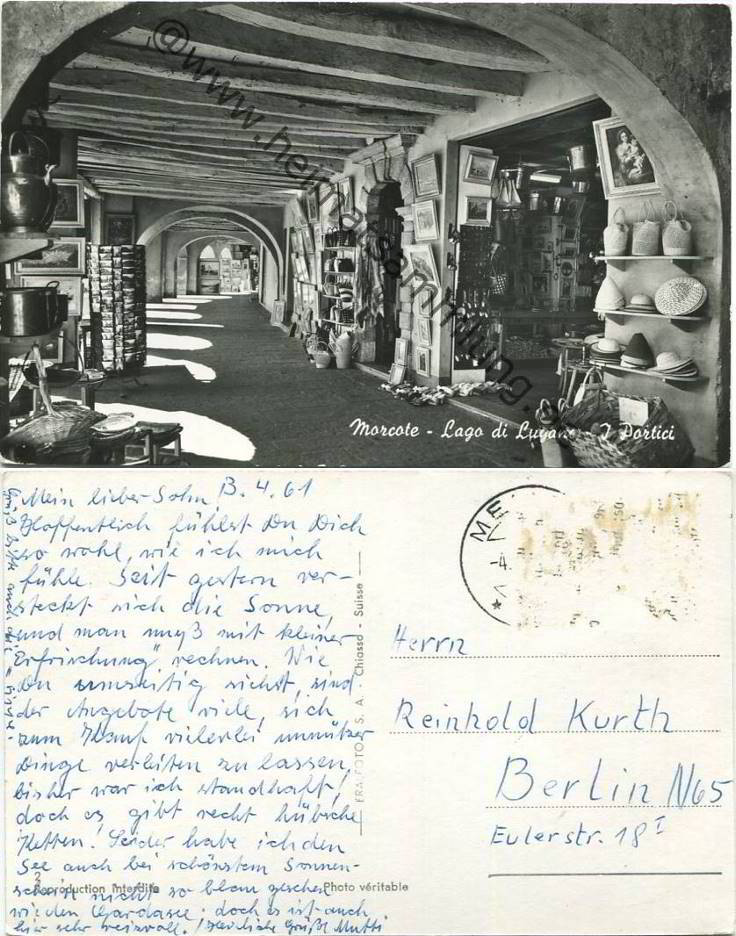 @www.heimatsammlung.de
Morcote - Lago di Lugano I Portici
Mein lieber Sohn 13.4.61
Hoffentlich fühlst Du Dich
so wohl, wie ich mich
fühle. Seit gestern ver-
steckt sich die Sonne,
und man muß mit kleiner
"Erfrischung" rechnen. Wie
Du umseitig siehst, sind
der Angebote viele, sich
zum Kauf vielerlei unnützer
Dinge verleiten zu lassen,
bisher war ich standhaft,
doch es gibt recht hübsche
Ketten! Leider habe ich den
See auch bei schönstem Sonnen-
schein nicht so blau gesehen
wie den Gardasee; doch es ist auch
hier sehr reizvoll. Herzliche Grüße Mutti
Gruß bitte auch
ERA FOTO S. A. Chiasso - Suisse
Reproduction interdite
Photo véritable
ME
4.
Herrn
Reinhold Kurth
Berlin N65
Eulerstr. 18 I